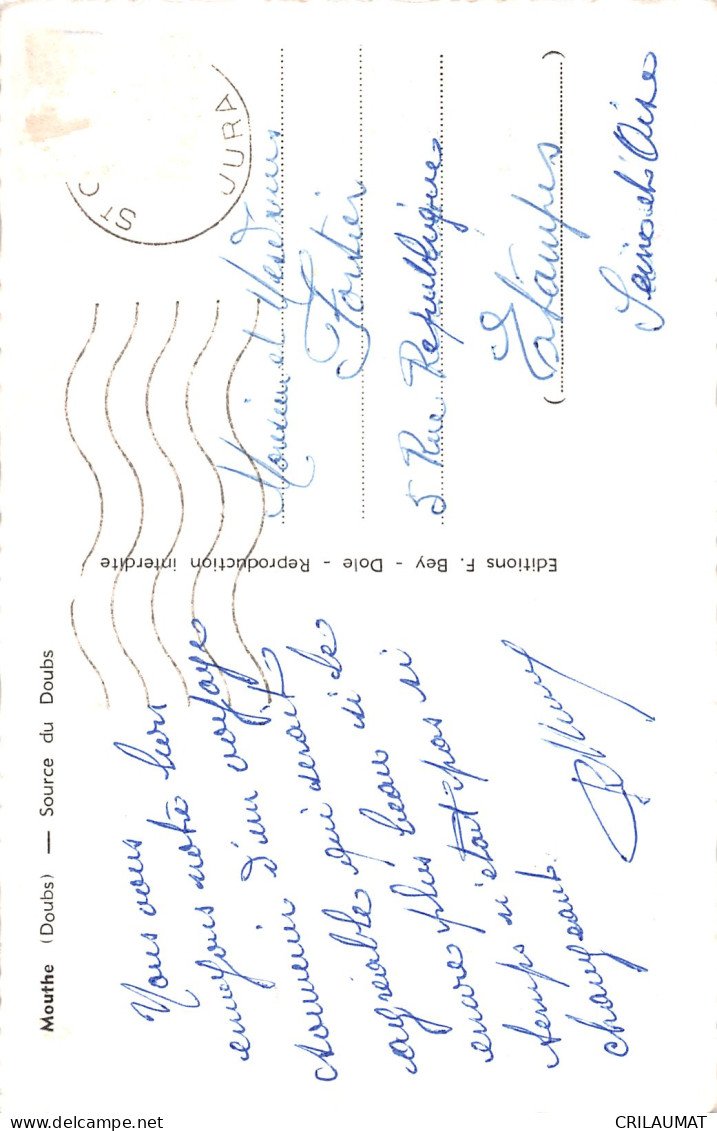 Mouthe (Doubs) — Source du Doubs
Nous vous
envoyons notre bon
souvenir d'un voyage
agréable qui serait
encore plus beau si le
temps n'était pas si
changeant.
Editions F. Bey - Dole - Reproduction interdite
ST C
JURA
Monsieur et Mesdames
Fortier
5 Rue République
(Etampes)
Seine et Oise
CRILAUMAT